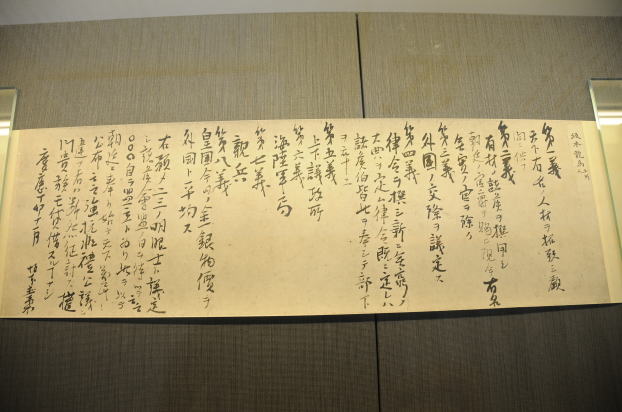 坂本龍馬
第一義
天下有名ノ人材ヲ招致シ顧
問ニ供フ
第二義
有材ノ諸侯ヲ撰用シ
朝廷ノ官爵ヲ賜ヒ現今有名
無実ノ官ヲ除ク
第三義
外国ノ交際ヲ議定ス
第四義
律令ヲ撰シ新ニ無窮ノ
大典ヲ定ム律令既ニ定レハ
諸侯伯皆此ヲ奉シテ部下
ヲ
第五義
上下議政所
第六義
海陸軍局
第七義
親兵
第八義
皇国今日ノ金銀物価ヲ
外国ト平均ス
右預メ二三ノ明眼士ト議定
シ諸侯会盟ノ日ヲ待ツテ云云
○○○自ラ盟主ト為リ此ヲ以テ
朝廷ニ奉リ始テ天下萬民ニ
公布云云強抗非礼公議ニ
違フ者ハ断然征討ス權
門貴族モ貸借スルコトナシ
慶應丁卯十一月 坂本直柔